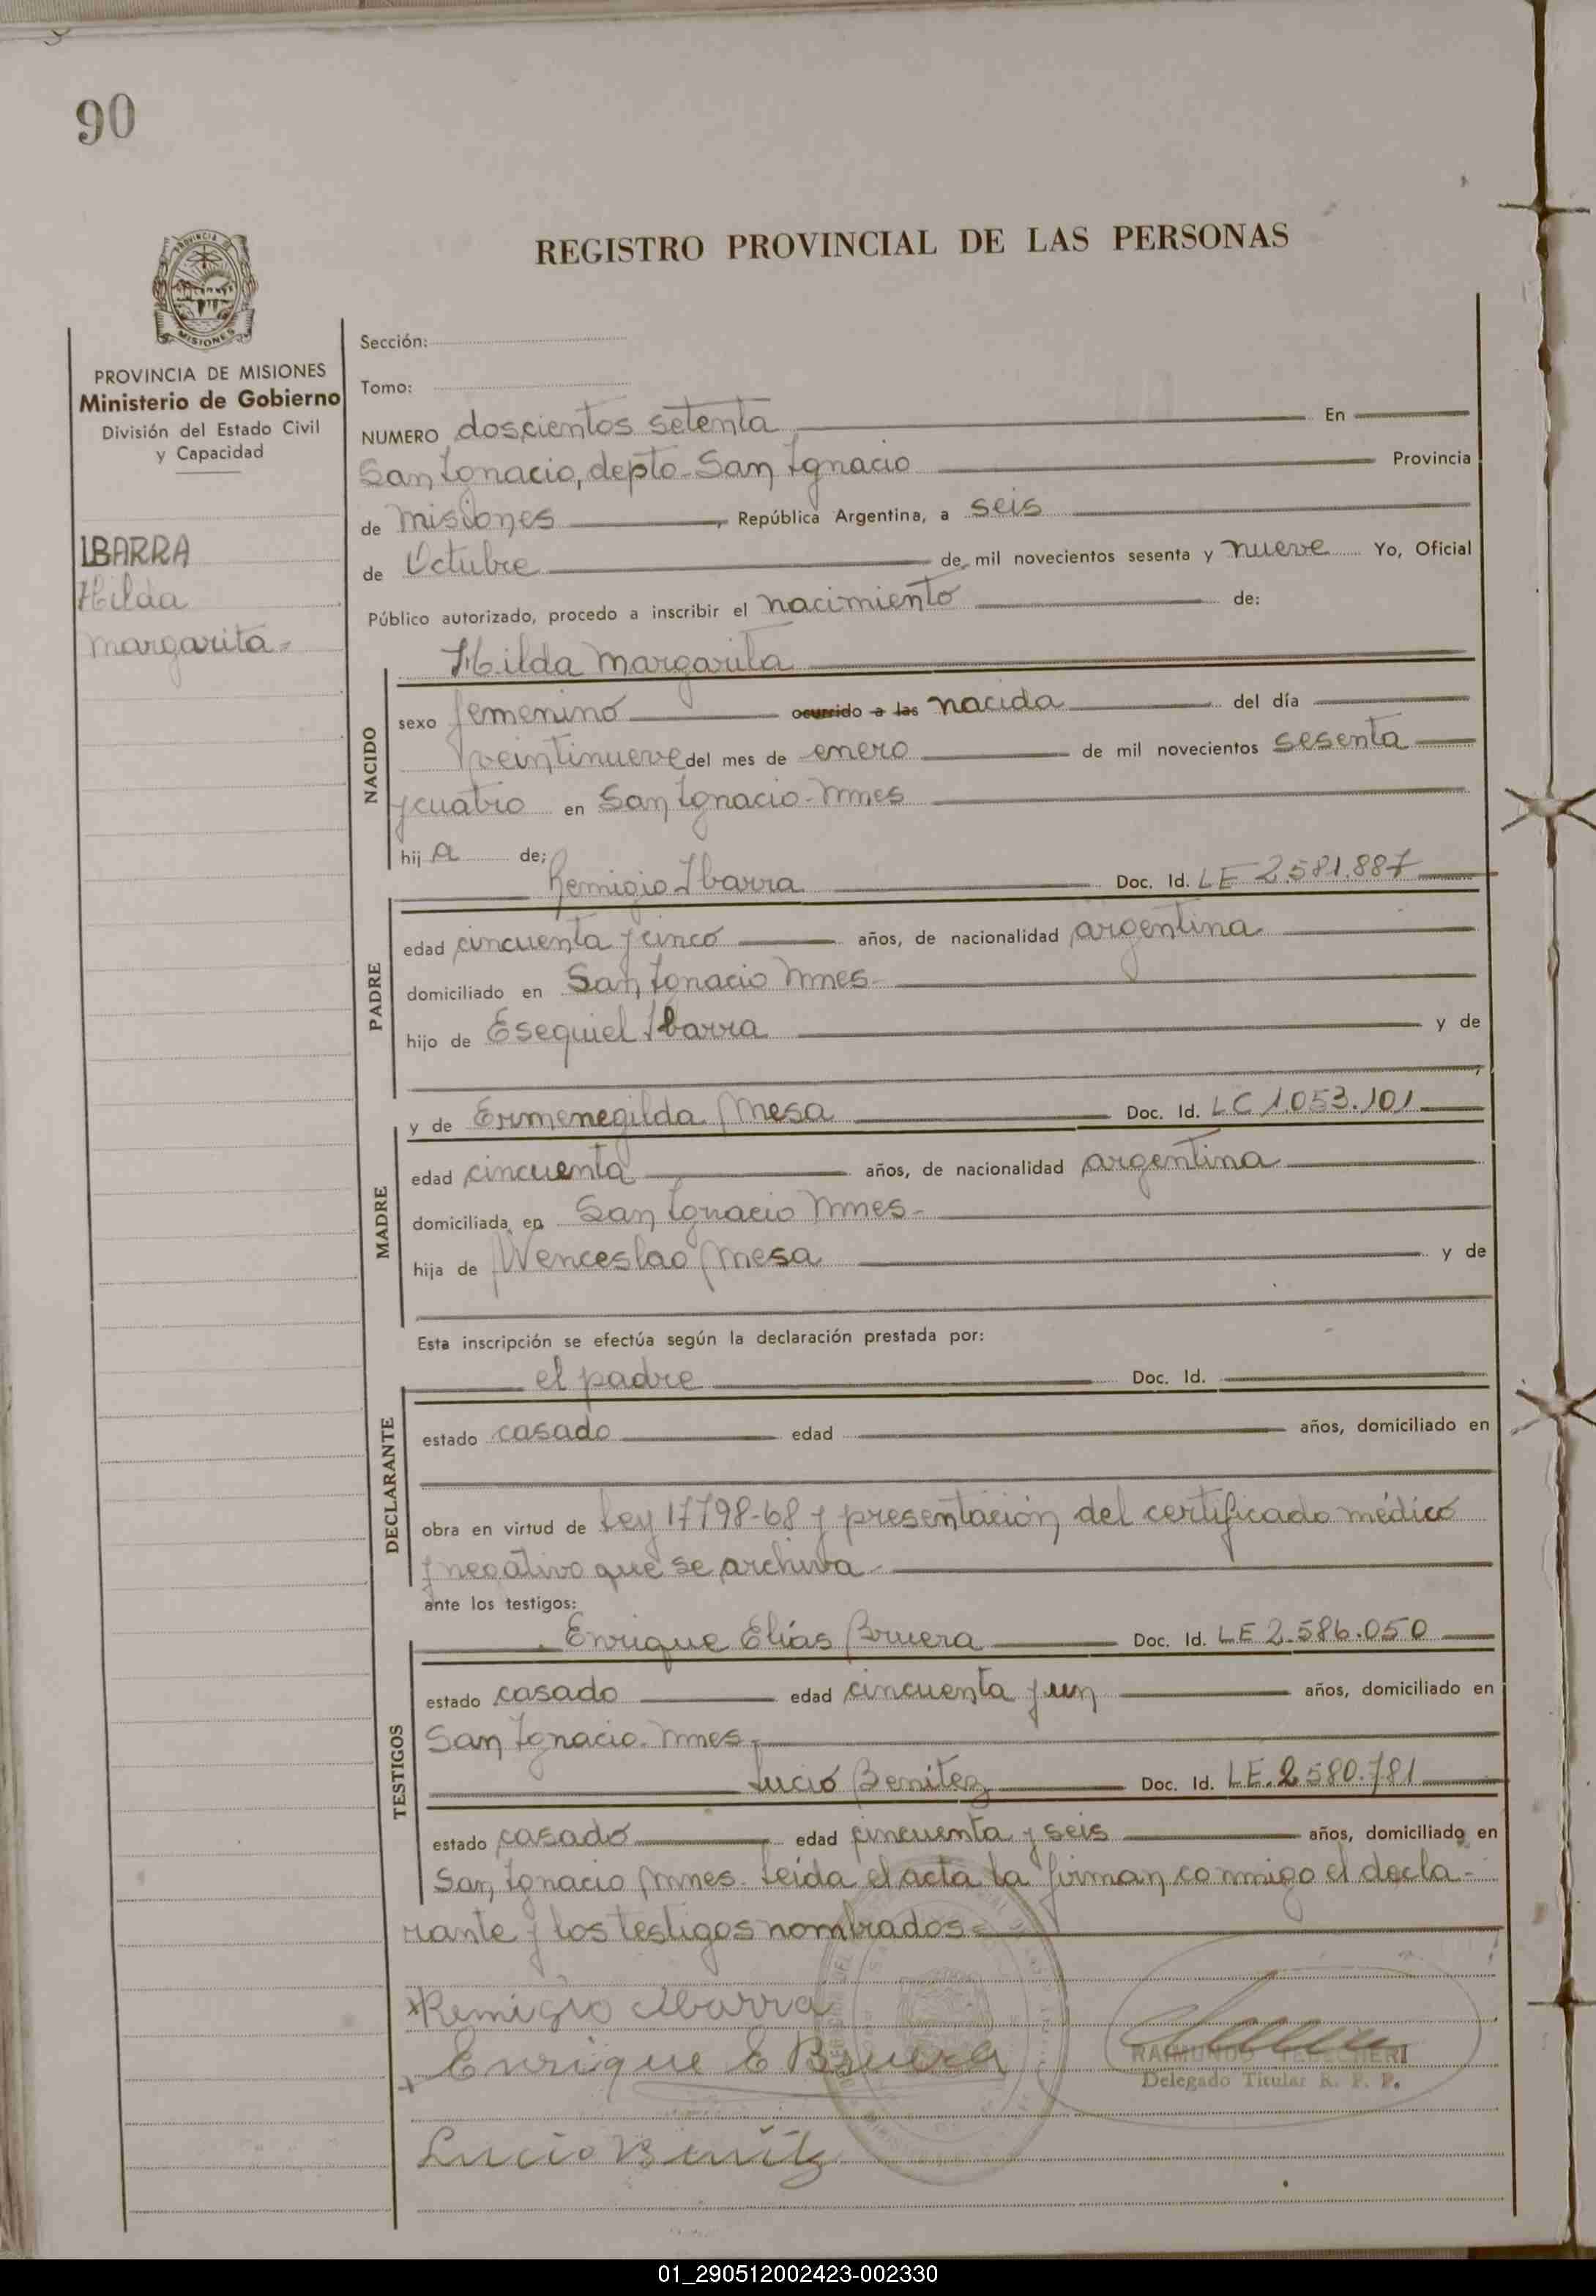 90
REGISTRO PROVINCIAL DE LAS PERSONAS
PROVINCIA DE MISIONES
Ministerio de Gobierno
División del Estado Civil
y Capacidad
IBARRA
Hilda
Margarita-
Sección:
Tomo:
NUMERO doscientos setenta En
San Ignacio, depto. San Ignacio Provincia
de Misiones, República Argentina, a seis
de Octubre de mil novecientos sesenta y nueve Yo, Oficial
Público autorizado, procedo a inscribir el nacimiento de:
NACIDO
Hilda Margarita
sexo femenino ocurrido a las nacida del día
veintinueve del mes de enero de mil novecientos sesenta
y cuatro en San Ignacio-Mnes
hij a de:
PADRE
Remigio Ibarra Doc. Id. LE 2.581.887
edad cincuenta y cinco años, de nacionalidad argentina
domiciliado en San Ignacio Mnes-
hijo de Esequiel Ibarra y de
MADRE
y de Ermenegilda Mesa Doc. Id. LC 1.053.101
edad cincuenta años, de nacionalidad argentina
domiciliada en San Ignacio Mnes-
hija de Wenceslao Mesa y de
Esta inscripción se efectúa según la declaración prestada por:
DECLARANTE
el padre Doc. Id.
estado casado edad años, domiciliado en
obra en virtud de Ley 17798-68 y presentación del certificado médico
y negativo que se archiva-
ante los testigos:
TESTIGOS
Enrique Elías Bruera Doc. Id. LE 2.586.050
estado casado edad cincuenta y un años, domiciliado en
San Ignacio-Mnes.
Lucio Benítez Doc. Id. LE.2.580.781
estado casado edad cincuenta y seis años, domiciliado en
San Ignacio Mnes. Leída el acta la firman conmigo el decla-
rante y los testigos nombrados=
Remigio Ibarra
Enrique E Bruera
RAIMUNDO
Delegado Titular R. P. P.
Lucio Benitz
01_290512002423-002330